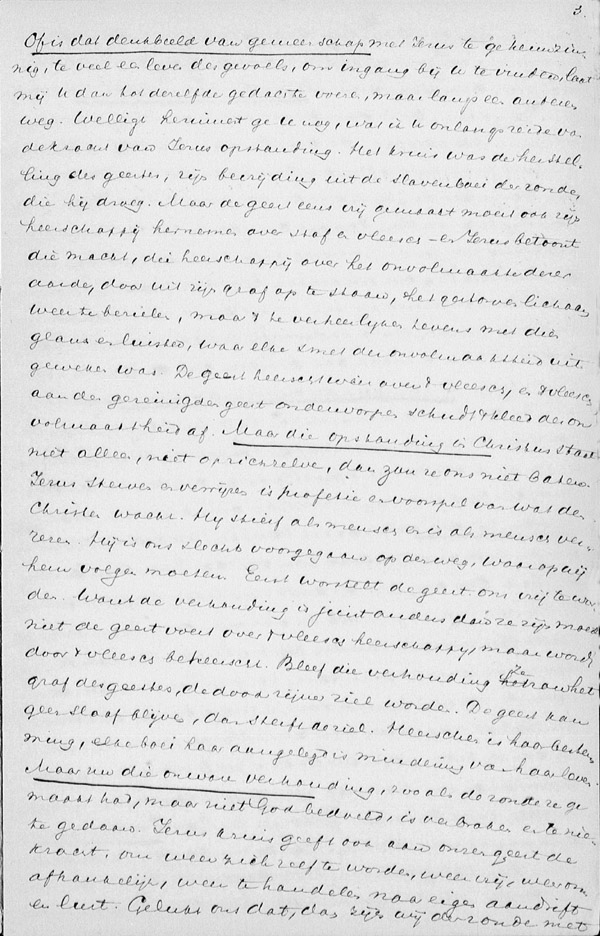 3.
Of is dat denkbeeld van gemeenschap met Jezus te geheimzin-
nig, te veel een leven des gevoels, om ingang bij U te vinden, laat
mij U dan tot dezelfde gedachte voeren, maar langs een anderen
weg. Wellicht herinnert ge U nog, wat ik U onlangs zeide van
de kracht van Jezus opstanding. Het kruis was de herstel-
ling des geestes, zijn bevrijding uit de slavenboei der zonde,
die hij droeg. Maar de geest eens vrij gemaakt moest ook zijn
heerschappij hernemen over stof en vleesch – en Jezus betoont
die macht, die heerschappij over het onvolmaakte dezer
aarde, door uit zijn graf op te staan, het gestorven lichaam
weer te bezielen, maar 't te verheerlijken tevens met dien
glans en luister, waar elke smet der onvolmaaktheid uit
geweken was. De geest heerscht weer over 't vleesch, en 't vleesch
aan den gereinigden geest onderworpen schudt 't kleed der on
volmaaktheid af. Maar die opstanding in Christus staat
niet alleen, niet op zichzelve, dan zou ze ons niet baten.
Jezus sterven en verrijzen is profetie en voorspel van wat den
Christen wacht. Hij stierf als mensch en is als mensch ver-
rezen. Hij is ons slechts voorgegaan op den weg, waarop wij
hem volgen moeten. Eerst worstelt de geest om vrij te wor
den. Want de verhouding is juist anders dan ze zijn moest
niet de geest voert over 't vleesch heerschappij, maar wordt
door 't vleesch beheerscht. Bleef die verhouding ze zou het
graf des geestes, de dood zijner ziel worden. De geest kan
geen slaaf blijven, dan sterft de ziel. Heerschen is haar bestem
ming, elke boei haar aangelegd is mindering van haar leven.
Maar nu die onware verhouding, zooals de zonde ze ge
maakt had, maar niet God bedoeld, is verbroken en te niet
te gedaan. Jezus kruis geeft ook aan onzen geest de
kracht, om weer zichzelf te worden, weer vrij, weer on
afhankelijk, weer te handelen naar eigen aandrift
en lust. Gelukt ons dat, dan zijn wij der zonde met